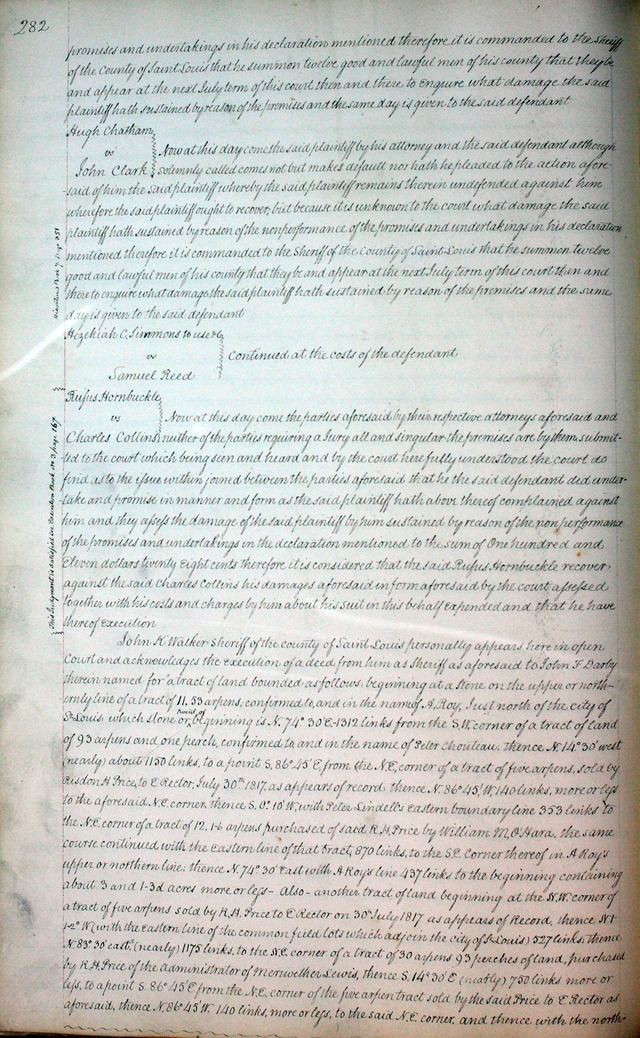 282
promises and undertakings in his declaration mentioned therefore it is commanded to the Sheriff
of the County of Saint Louis that he summon twelve good and lawful men of his county that they be
and appear at the next July term of this court then and there to Enquire what damage the said
plaintiff hath sustained by reason of the promises and the same day is given to the said defendant
Hugh Chatham
vs
Now at this day come the said plaintiff by his attorney and the said defendant although
John Clark solemnly called comes not but makes default nor hath he pleaded to the action afore-
said of him the said plaintiff whereby the said plaintiff remains therein undefended against him
wherefore the said plaintiff ought to recover, but because it is unknown to the court what damage the said
plaintiff hath sustained by reason of the nonperformance of the promises and undertakings in his declaration
mentioned therefore it is commanded to the Sheriff of the County of Saint Louis that he summon twelve
good and lawful men of his county that they be and appear at the next July term of this court then and
there to enquire what damage the said plaintiff hath sustained by reason of the premises and the same
day is given to the said defendant
Hezekiah C. Simmons to use &c
vs
Continued at the costs of the defendant
Samuel Reed
Rufus Hornbuckle
vs
Now at this day come the parties aforesaid by their respective attorneys aforesaid and
Charles Collins neither of the parties requiring a Jury all and singular the premises are by them submit-
ted to the court which being seen and heard and by the court here fully understood the court do
find as to the issue within joined between the parties aforesaid that he the said defendant did under-
take and promise in manner and form as the said plaintiff hath above thereof complained against
him and they assess the damage of the said plaintiff by him sustained by reason of the non performance
of the promises and undertakings in the declaration mentioned to the sum of One hundred and
Eleven dollars twenty Eight cents therefore it is considered that the said Rufus Hornbuckle recover
against the said Charles Collins his damages aforesaid in form aforesaid by the court assessed
together with his costs and charges by him about his Suit in this behalf expended and that he have
thereof execution
This Judgment is satisfied see Execution Book No 3 page 167
John K Walker Sheriff of the county of Saint Louis personally appears here in open
Court and acknowledges the execution of a deed from him as Sheriff as aforesaid to John F Darby
therein named for a tract of land bounded as follows, beginning at a Stone on the upper or north-
ernly line of a tract of 11,53 arpens, confirmed to, and in the name of A, Roy, Just north of the city of
St Louis which stone or beginning is N. 74° 30' E. 1312 links from the S.W. corner of a tract of land
of 93 arpens and one perch, confirmed to and in the name of Peter Chouteau, thence N. 14° 30' west
(nearly) about 1150 links, to a point S. 86° 45' E, from the N.E. corner of a tract of five arpens, sold by
Risdon H, Price, to E Rector, July 30th 1817, as appears of record, thence N. 86° 45' W. 140 links, more or less
to the aforesaid N.E. corner, thence S. 0° 10' W, with Peter Lindell's Eastern boundary line 353 links to
the N.E. corner of a tract of 12, 1-6 arpens purchased of said R.H. Price by William M, O'Hara, the same
course continued with the Eastern line of that tract, 870 links, to the S.E. Corner thereof in A Roy's
upper or northern line; thence N. 74° 30' East with A Roy's line 437 links to the beginning containing
about 3 and 1-3d acres more or less - Also - another tract of land beginning at the N.W. corner of
a tract of five arpens sold by R.H. Price to E Rector on 30th July 1817 as appears of Record, thence N. 1-
1-2° W. (with the Eastern line of the common field lots which adjoin the city of St Louis) 527 links, thence
N. 83° 30' east, (nearly) 1175 links, to the N.E. corner of a tract of 30 arpens 93 perches of land, purchased
by R.H. Price of the Administrator of Merwether Lewis, thence S. 14° 30' E (nearly) 750 links more or
less, to a point S. 86° 45' E from the N.E. corner of the five arpen tract sold by the said Price to E Rector as
aforesaid, thence N. 86° 45' W. 140 links, more or less, to the said N.E. corner, and thence with the north-